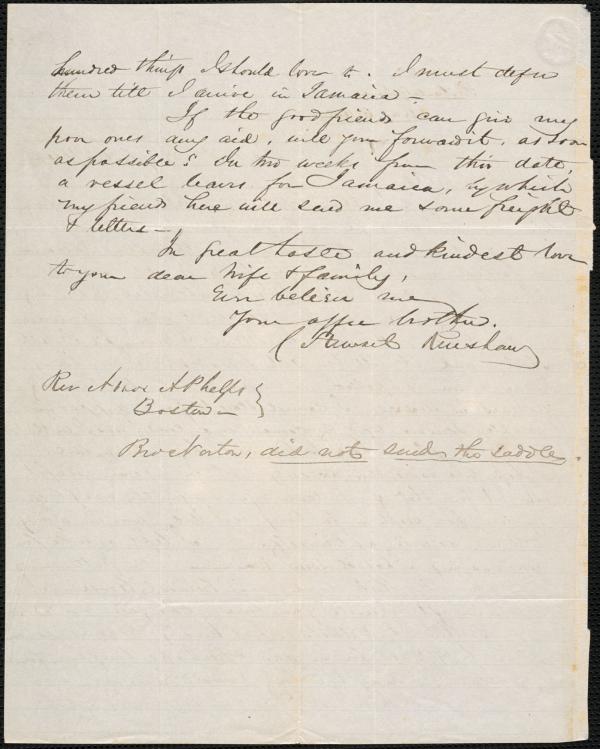 hundred things I should love to. I must defer
them till I arrive in Jamaica –
If the good friends can give my
poor ones any aid, will you forward it, as soon
as possible? In two weeks from this date,
a vessel leaves for Jamaica, by which
my friends here will send me some freight
& letters –
In great haste and kindest love
to your dear Wife & family,
Ever believe me
Your affec brother.
Renshaw
Rev Amos A Phelps
Boston –
Bro Norton, did not send the saddle.